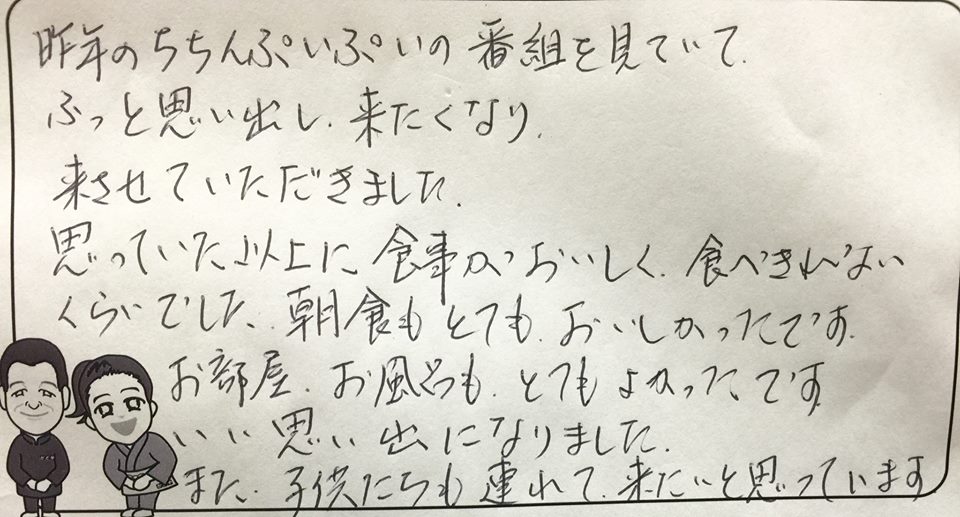 昨年のちちんぷいぷいの番組を見ていて、
ふっと思い出し、来たくなり、
来させていただきました。
思っていた以上に、食事がおいしく、食べきれない
くらいでした、朝食もとても、おいしかったです。
お部屋、お風呂も、とてもよかったです
いい思い出になりました。
また、子供たちも連れて、来たいと思っています